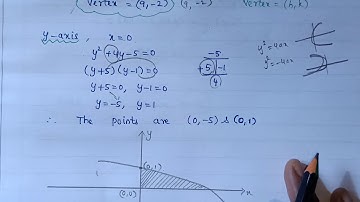 Vertex = (9, -2) (9, -2) Vertex = (h, k)
y-axis, x=0
y² + 4y - 5 = 0
(y+5) (y-1) = 0
y+5=0, y-1=0
y=-5, y=1
-5
+5 | -1
(4)
y²=4ax
y²=-4ax
∴ The points are (0,-5) & (0,1)
y
(0,1)
(0,0)
x